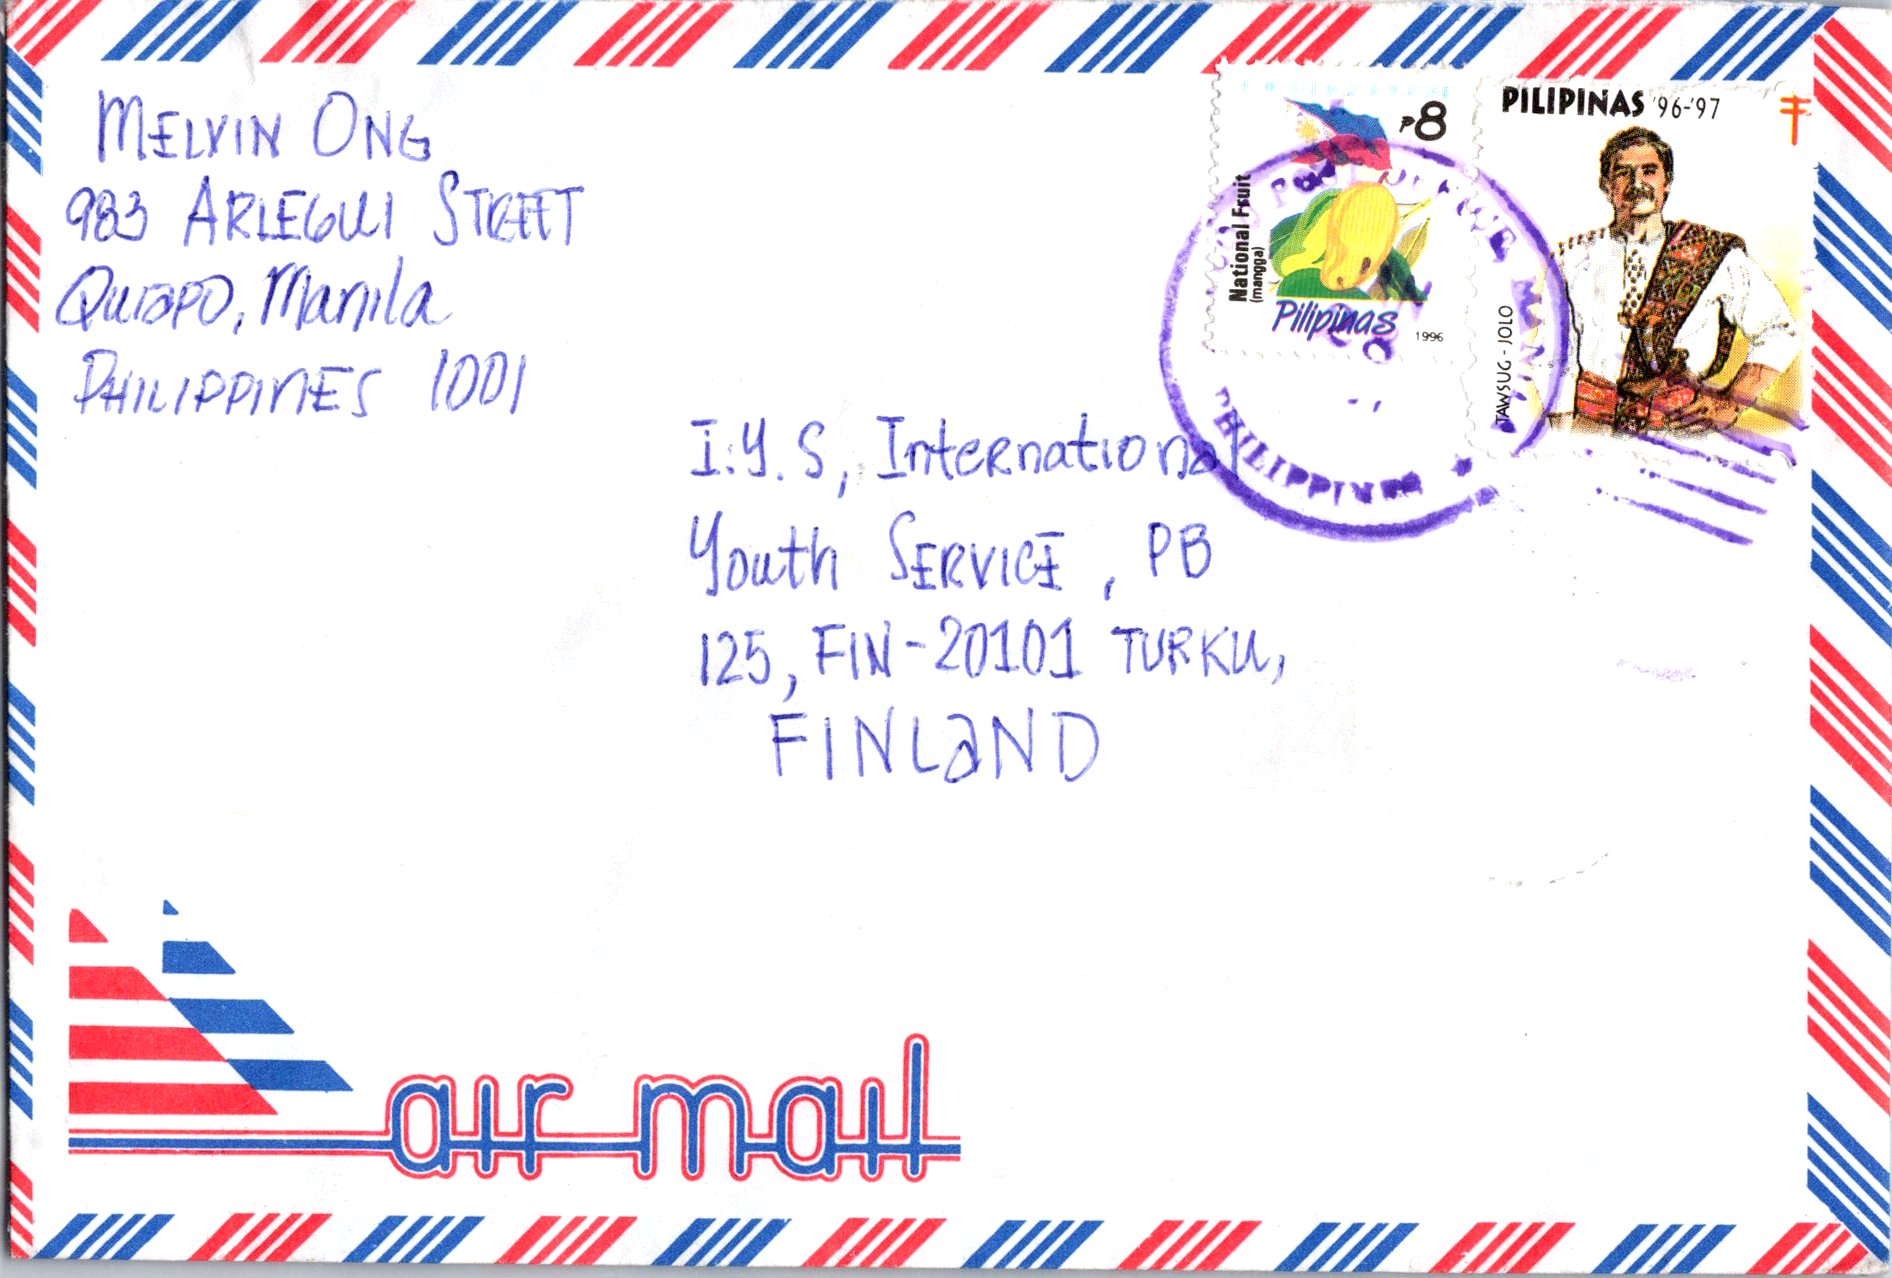 MELVIN ONG
983 ARLEGUI STREET
QUIAPO, Manila
PHILIPPINES 1001
₱8
National Fruit
(mangga)
Pilipinas
1996
PILIPINAS '96-'97
TAWSUG - JOLO
POST OFFICE MANILA
PHILIPPINES
I.Y.S, International
Youth SERVICE, PB
125, FIN-20101 TURKU,
FINLAND
air mail